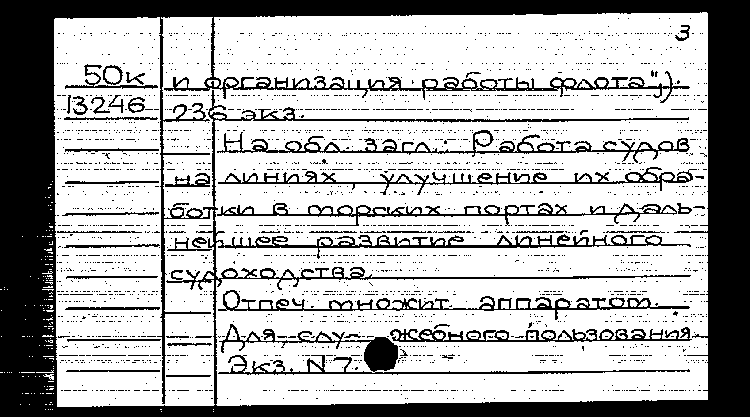 3
50к и организация работы флота",).
13246 236 экз.
На обл. загл.: Работа судов
на линиях, улучшение их обра-
ботки в морских портах и даль-
нейшее развитие линейного
судоходства.
Отпеч. множит. аппаратом.
Для слу- жебного пользования.
Экз. N 7.